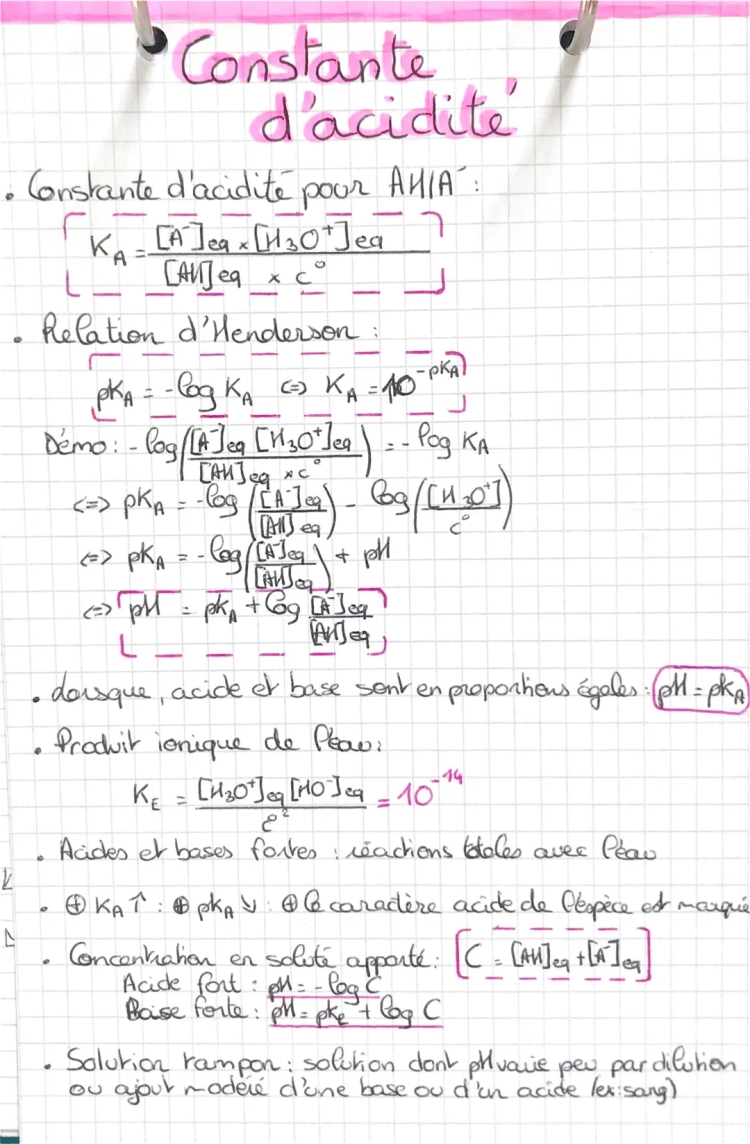 Constante
d'acidité
• Constante d'acidité pour AH/A⁻ :
K_A = [A⁻]eq × [H₃O⁺]eq / [AH]eq × c°
• Relation d'Henderson :
pK_A = -log K_A <=> K_A = 10^-pK_A
Démo : -log([A⁻]eq [H₃O⁺]eq / [AH]eq × c°) = -log K_A
<=> pK_A = -log([A⁻]eq / [AH]eq) - log([H₃O⁺] / c°)
<=> pK_A = -log([A⁻]eq / [AH]eq) + pH
<=> pH = pK_A + log [A⁻]eq / [AH]eq
• Lorsque, acide et base sont en proportions égales : pH = pK_A
• Produit ionique de l'eau :
K_E = [H₃O⁺]eq [HO⁻]eq / c°² = 10⁻¹⁴
• Acides et bases fortes : réactions totales avec l'eau
• ⊕ K_A ↑ : ⊕ pK_A ↘ : ⊕ le caractère acide de l'espèce est marqué
• Concentration en soluté apporté : C = [AH]eq + [A⁻]eq
Acide fort : pH = -log C
Base forte : pH = pKe + log C
• Solution tampon : solution dont pH varie peu par dilution
ou ajout modéré d'une base ou d'un acide (ex : sang)